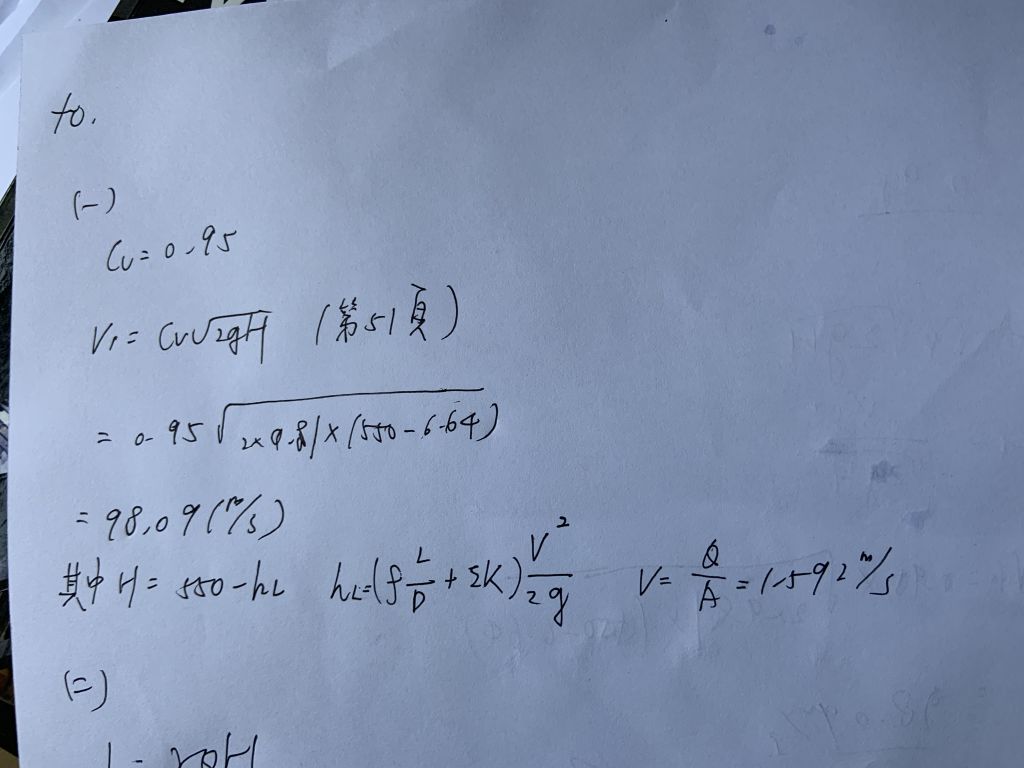 10.
(一)
Cv=0.95
V₁=Cv√2gH (第51頁)
=0.95√2×9.81×(550-6.64)
=98.09(m/s)
其中H=550-hL hL=(f L/D+ΣK)V²/2g V=Q/A=1.592m/s
(二)
L=rQH